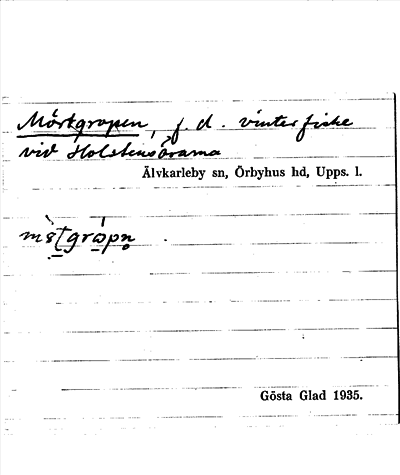 Mörtgropen, f. d. vinterfiske
vid Holstensörarna
Älvkarleby sn, Örbyhus hd, Upps. l.
Gösta Glad 1935.